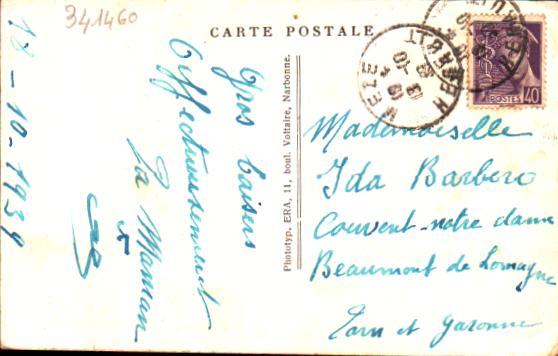 341460
CARTE POSTALE
12-10-1939
Gros baisers
Affectueusement
Ta Maman
Phototyp. ERA, 11, boul. Voltaire, Narbonne.
MEZE
HERAULT
POSTES
40
Mademoiselle
Ida Barbero
Couvent-notre dame
Beaumont de Lomagne
Tarn et Garonne